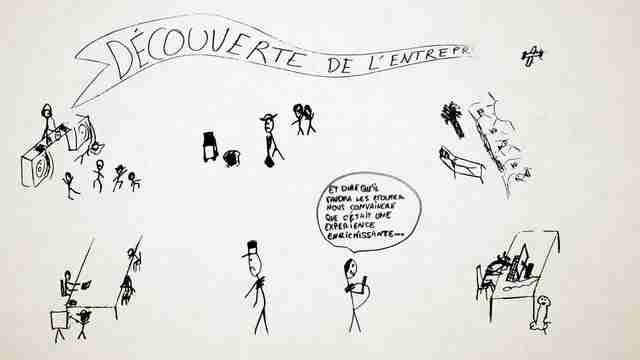 DÉCOUVERTE DE L'ENTREPR
ET DIRE QU'IL
FAUDRA LES ÉCOUTER
NOUS CONVAINCRE
QUE C'ÉTAIT UNE
EXPÉRIENCE
ENRICHISSANTE...